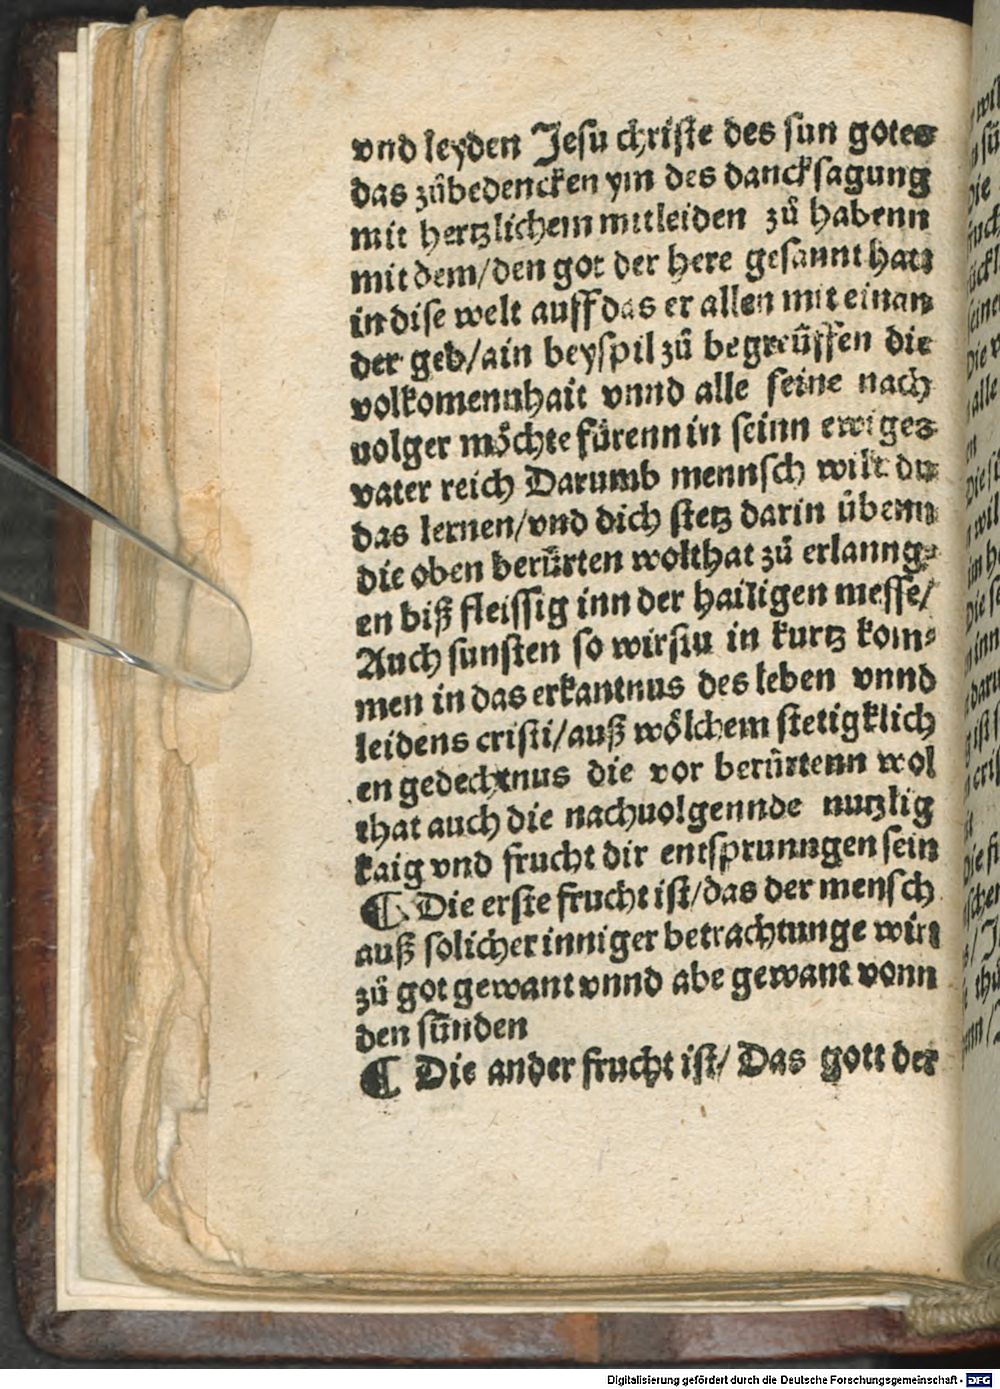 vnd leyden Jesu christe des sun gotes
das zůbedencken ym des dancksagung
mit hertzlichem mitleiden zů habenn
mit dem/den got der here gesannt hatt
in dise welt auff das er allen mit einan
der geb/ain beyspil zů begreüffen die
volkomennhait vnnd alle seine nach
uolger möchte fürenn in seinn ewiges
vater reich Darumb mennsch wilt du
das lernen/vnd dich stetz darin übenn
die oben berürten wolthat zů erlanng⸗
en biß fleissig inn der hailigen messe/
Auch sunsten so wirstu in kurtz kom⸗
men in das erkantnus des leben vnnd
leidens cristi/auß wölchem stetigklich
en gedechtnus die vor berürtenn wol
that auch die nachuolgennde nutzlig
kaig vnd frucht dir entsprunngen sein
¶ Die erste frucht ist/das der mensch
auß solicher inniger betrachtunge wirt
zů got gewant vnnd abe gewant vonn
den sünden
¶ Die ander frucht ist/ Das gott der
Digitalisierung gefördert durch die Deutsche Forschungsgemeinschaft - DFG